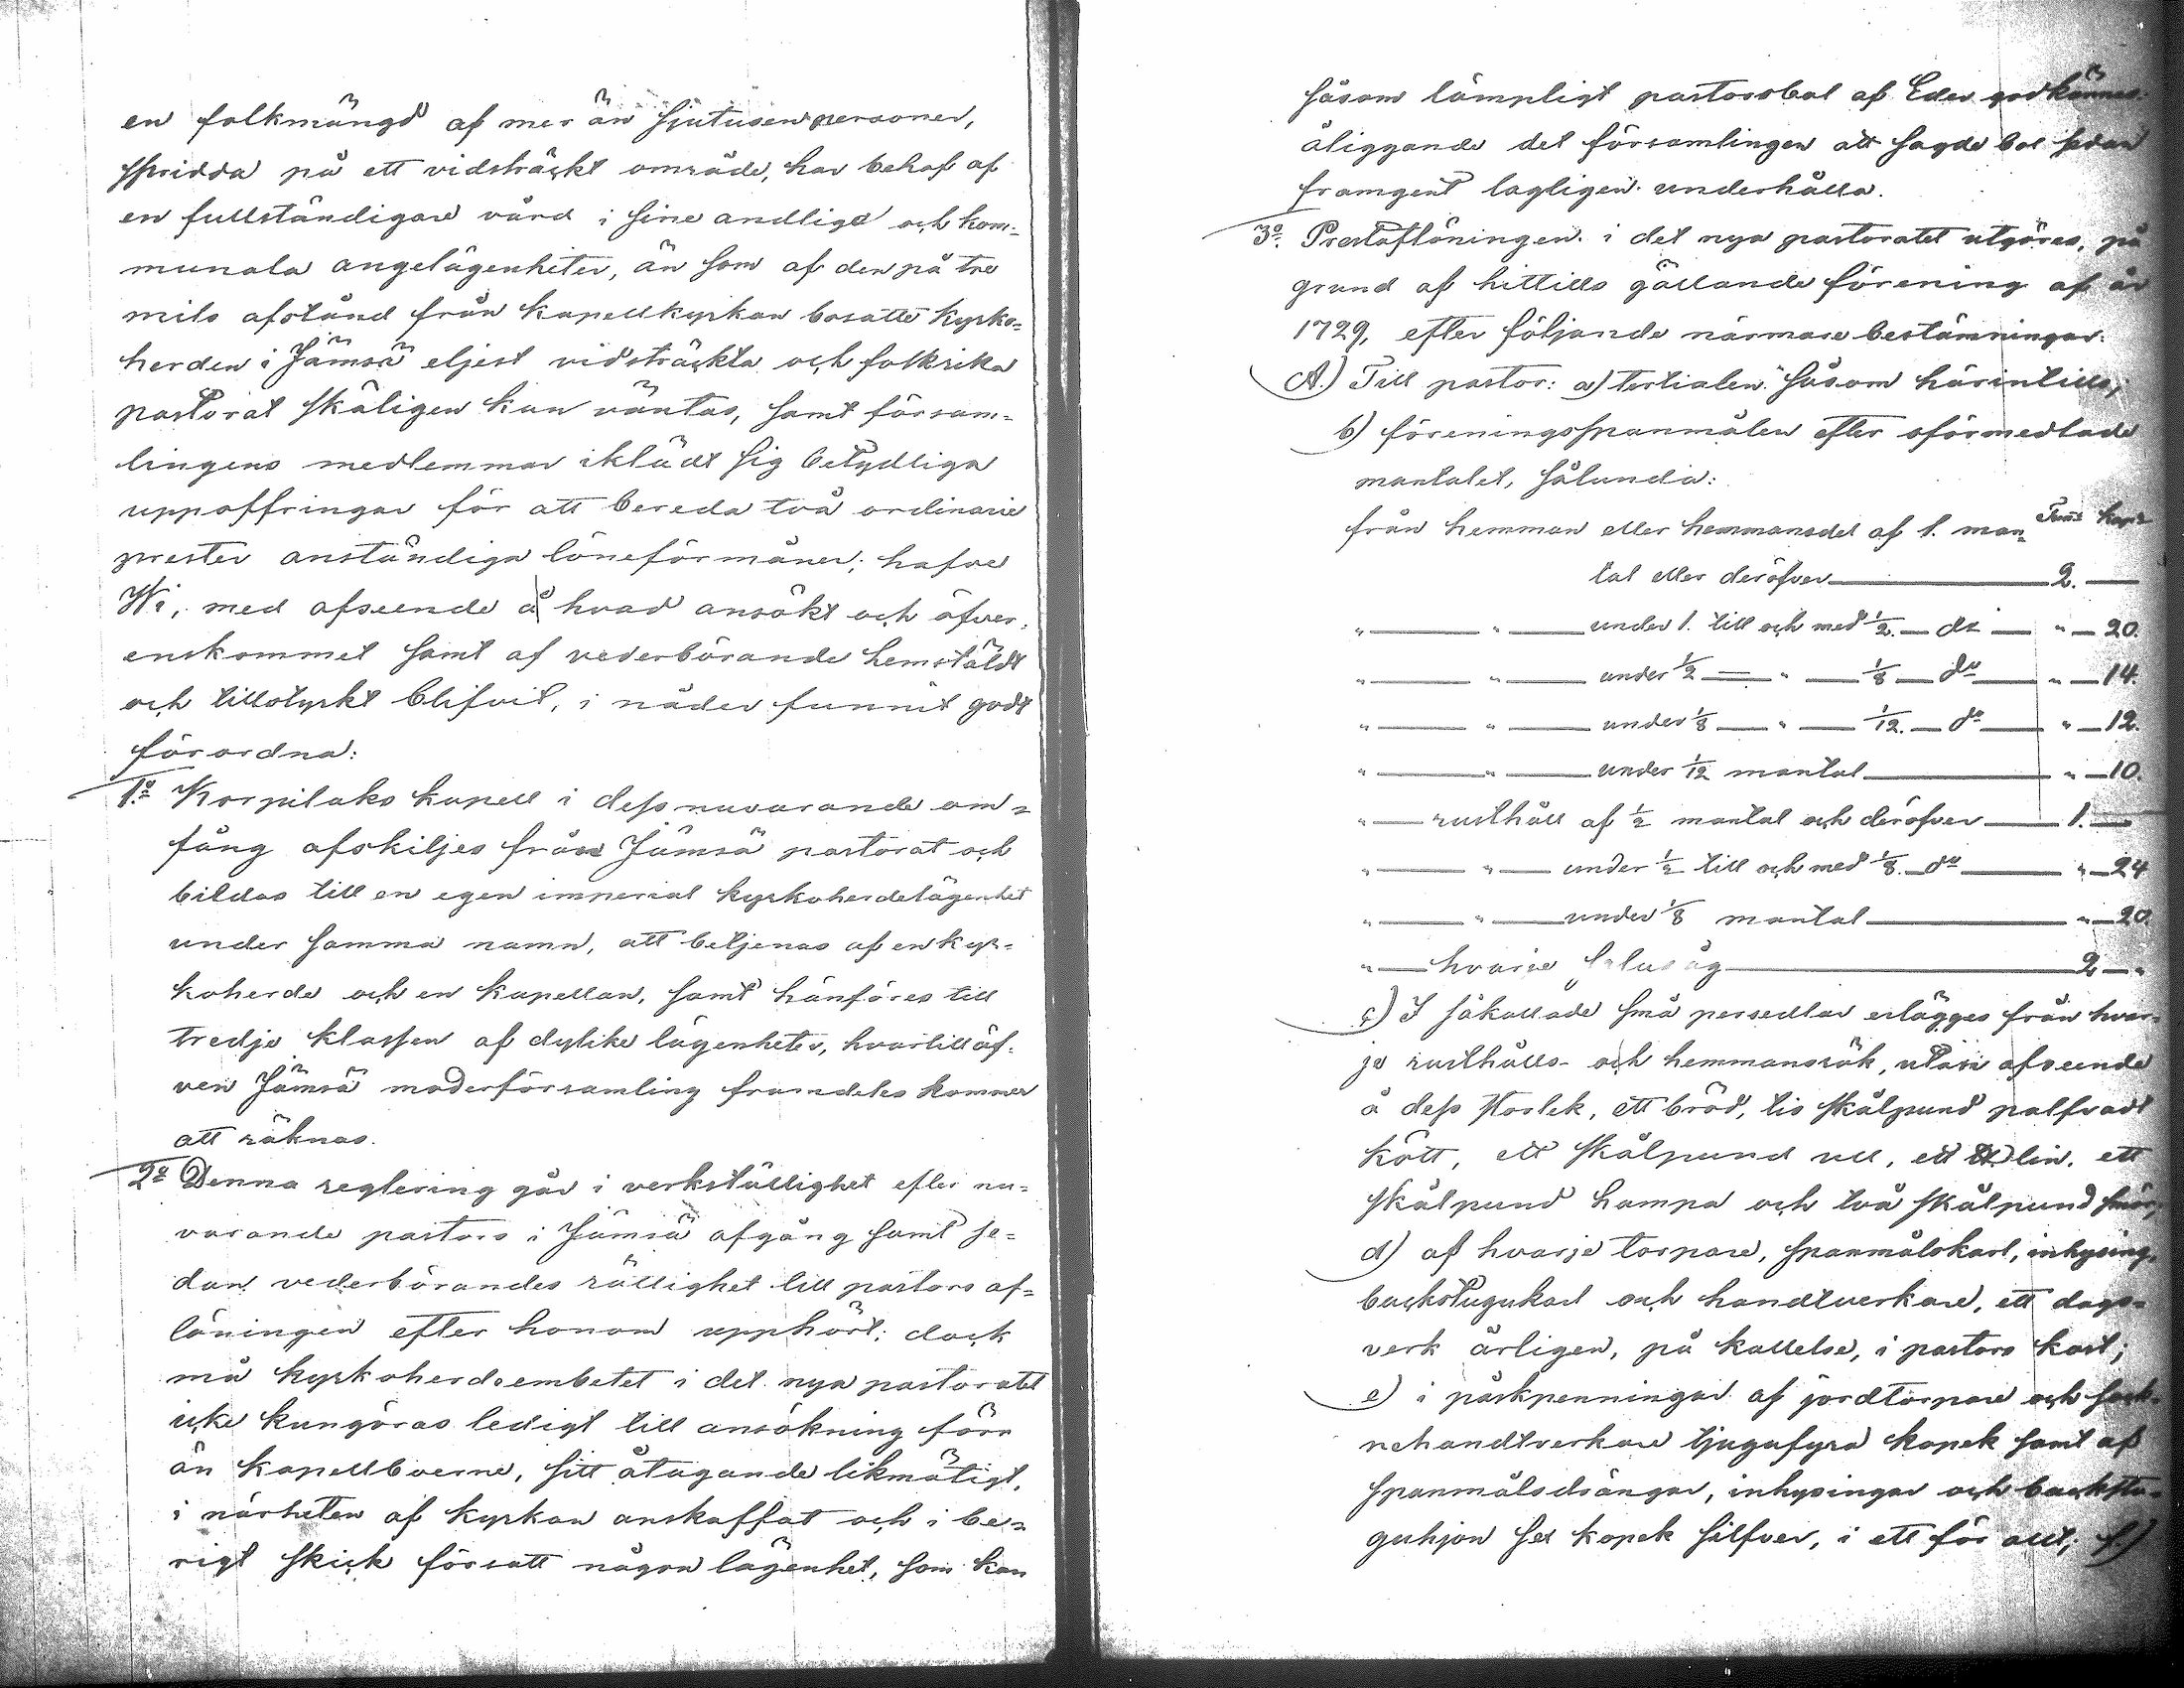 en folkmängd af mer än sjutusen personer,
spridda på ett vidsträckt område, har behof af
en fullständigare vård i sine andliga och kom-
munala angelägenheter, än som af den på tre
mils afstånd från kapellkyrkan bosatte kyrko-
herden i Jämsä eljest vidsträckta och folkrika
pastorat skäligen kan väntas, samt försam-
lingens medlemmar iklädt sig betydliga
uppoffringar för att bereda två ordinarie
prester anständiga löneförmåner; hafve
Wi, med afseende å hvad ansökt och öfver-
enskommet samt af vederbörande hemstäldt
och tillstyrkt blifvit, i nåder funnit godt
förordna:
1:o Korpilaks kapell i dess nuvarande om-
fång afskiljes från Jämsä pastorat och
bildas till en egen imperial kyrkoherdelägenhet
under samma namn, att betjenas af en kyr-
koherde och en kapellan, samt hänföres till
tredje klassen af dylika lägenheter, hvartill äf-
ven Jämsä moderförsamling framdeles kommer
att räknas.
2:o Denna reglering går i verkställighet efter nu-
varande pastors i Jämsä afgång samt se-
dan vederbörandes rättighet till pastors af-
löningen efter honom upphört; dock
må kyrkoherdeembetet i det nya pastoratet
icke kungöras ledigt till ansökning förr
än kapellboerne, sitt åtagande likmätigt,
i närheten af kyrkan anskaffat och i be-
rigt skick försatt någon lägenhet, som kan
såsom lämpligt pastorsbol af Eder godkännes:
åliggande det församlingen att sagde bol sedan
framgent lagligen underhålla.
3:o Prestaflöningen i det nya pastoratet utgöres, på
grund af hittills gällande förening af år
1729, efter följande närmare bestämningar:
A.) Till pastor: a) tertialen såsom härintills;
b) föreningsspanmålen efter oförmedlade
mantalet, sålunda:
från hemman eller hemmansdel af 1. man- Tun:r Kap:r
tal eller deröfver 2. —
" " under 1. till och med 1/2. do " 20.
" " under 1/2 " 1/8 do " 14.
" " under 1/8 " 1/12. do " 12.
" " under 1/12 mantal " 10.
" rusthåll af 1/2 mantal och deröfver 1. —
" " under 1/2 till och med 1/8. do " 24
" " under 1/8 mantal " 20.
" hvarje salusåg 2 "
c) I såkallade små persedlar erlägges från hvar-
je rusthålls- och hemmansrök, utan afseende
å dess storlek, ett bröd, tio skålpund palfvadt
kött, ett skålpund ull, ett lin, ett
skålpund hampa och två skålpund smör;
d) af hvarje torpare, spanmålskarl, inhysing,
backstugukarl och handtverkare, ett dags-
verk årligen, på kallelse, i pastors kost;
e) i påskpenningar af jordtorpare och sock-
nehandtverkare tjugufyra kopek samt af
spanmålsdrängar, inhysingar och backstu-
guhjon sex kopek silfver, i ett för allt; f.)